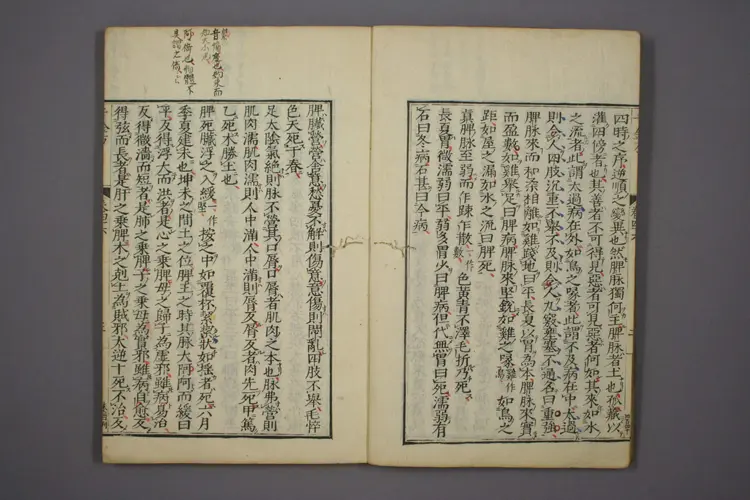 四時之序逆順之變異也然脾脉獨何主脾脉者土也孤藏以
灌四傍者也其善者不可得見惡者可見惡者何如其來如水
之流者此謂太過病在外如鳥之喙者此謂不及病在中太過
則令人四肢沉重不舉不及則令人九竅壅塞不通名曰重強
脾脉來而和柔相離如雞踐地曰平長夏以胃為本脾脉來實
而盈數如雞舉足曰脾病脾脉來堅銳如雞之喙如鳥之
距如屋之漏如水之流曰脾死
真脾脉至弱而乍踈乍散一作數色黃青不澤毛折乃死
長夏胃微濡弱曰平弱多胃少曰脾病但代無胃曰死濡弱有
石曰冬病石甚曰今病
脾臟營營舍意愁憂不解則傷意意傷則悶亂四肢不舉毛悴
色夭死于春
足太陰氣絕則脉不營其口脣口脣者肌肉之本也脉弗營則
肌肉濡肌肉濡則人中滿人中滿則脣反脣反者肉先死甲篤
乙死木勝土也
脾死臟浮之大緩一作堅按之中如覆杯絜絜狀如搖者死六月
季夏建未也坤未之間土之位脾王之時其脉大阿阿而緩曰
平反得浮大而洪者是心之乗脾母之歸子為虛邪雖病易治
反得微濇而短者是肺之乗脾子之乗母為實邪雖病自愈反
得弦而長者是肝之乗脾木之剋土為賊邪太逆十死不治反